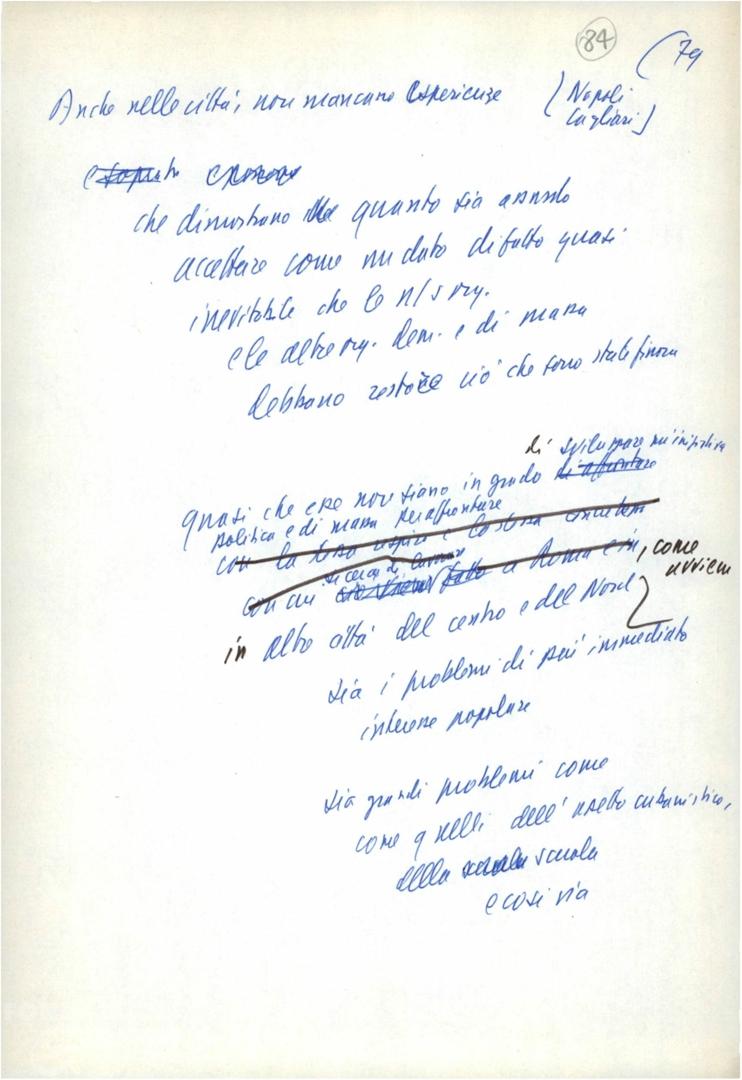 84
(79
Anche nelle città, non mancano esperienze (Napoli
Cagliari)
che dimostrano quanto sia assurdo
accettare come un dato di fatto quasi
inevitabile che le n/s org.
e le altre org. dem. e di massa
debbano restare ciò che sono state finora
di sviluppare un'iniziativa
quasi che esse non siano in grado di affrontare
politica e di massa per affrontare
con la
con cui a Roma e in , come
avviene
in altre città del centro e del Nord
sia i problemi di più immediato
interesse popolare
sia grandi problemi come
come quelli dell'assetto urbanistico,
della scuola scuola
e così via